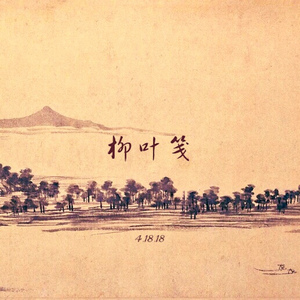 柳叶笺
4.18.18